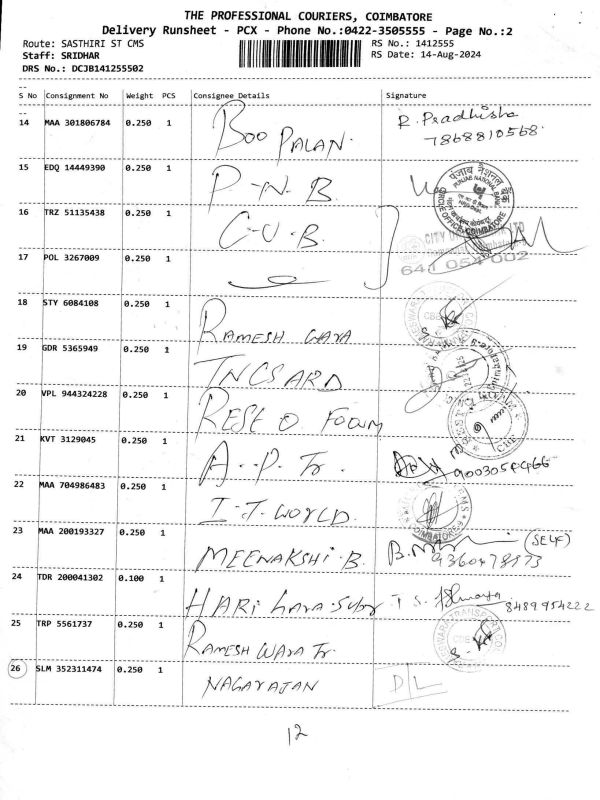 THE PROFESSIONAL COURIERS, COIMBATORE
Delivery Runsheet - PCX - Phone No.:0422-3505555 - Page No.:2
Route: SASTHIRI ST CMS RS No.: 1412555
Staff: SRIDHAR RS Date: 14-Aug-2024
DRS No.: DCJB141255502
S No Consignment No Weight PCS Consignee Details Signature
14 MAA 301806784 0.250 1 BOO PALAN. R. Pradhisha
7868810568.
15 EDQ 14449390 0.250 1 P-N-B.
पंजाब नैशनल बैंक
PUNJAB NATIONAL BANK
CIRCLE OFFICE, COIMBATORE
16 TRZ 51135438 0.250 1 C-U-B.
CITY LTD
641 054 002
17 POL 3267009 0.250 1
18 STY 6084108 0.250 1 RAMESH WAYA
19 GDR 5365949 0.250 1 INCSARD
20 VPL 944324228 0.250 1 REST O
21 KVT 3129045 0.250 1 A..P. Tr.
22 MAA 704986483 0.250 1 I-J-WORLD.
COIMBATORE
23 MAA 200193327 0.250 1 MEENAKSHI-B. (SELF)
9360478973
24 TDR 200041302 0.100 1 HARI T S.
8489954222
25 TRP 5561737 0.250 1 RAMESH WAYA Tr.
26 SLM 352311474 0.250 1 NAGARAJAN D/L
12